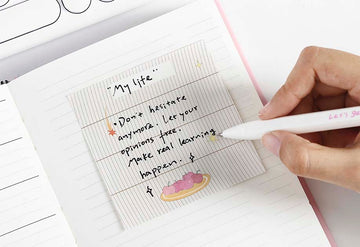 "My life"
• Don't hesitate
anymore. Let your
opinions free.
Make real learning
happen.